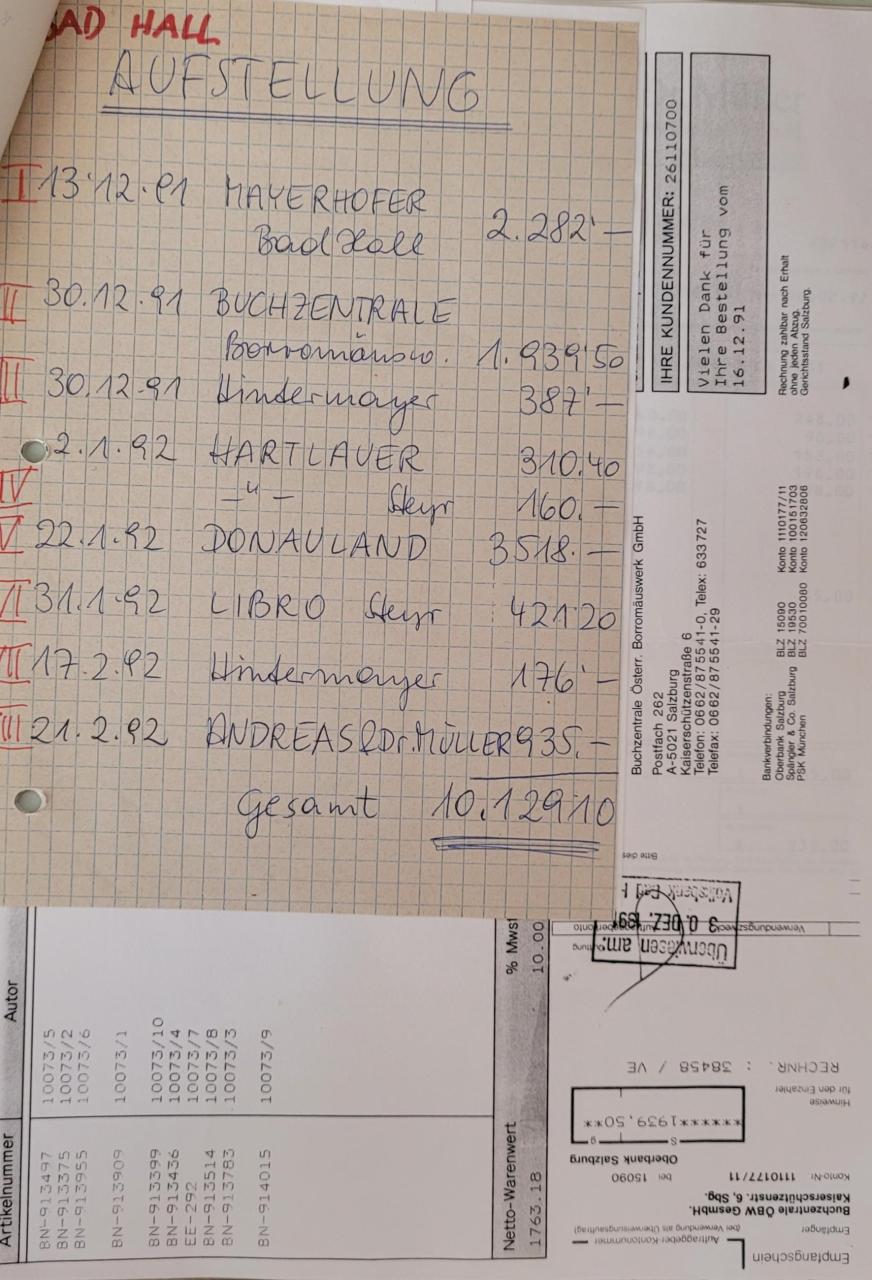 BAD HALL
AUFSTELLUNG
I 13.12.91 MAYERHOFER
Bad Hall 2.282'—
II 30.12.91 BUCHZENTRALE
Borromäusw. 1.939'50
III 30.12.91 Hindermayer 387'—
2.1.92 HARTLAUER 310.40
IV —"— Steyr 160.—
V 22.1.92 DONAULAND 3518.—
VI 31.1.92 LIBRO Steyr 421'20
VII 17.2.92 Hindermayer 176'—
VIII 21.2.92 ANDREAS&Dr.MÜLLER 935.—
Gesamt 10.129'10
IHRE KUNDENNUMMER: 26110700
Vielen Dank für
Ihre Bestellung vom
16.12.91
Rechnung zahlbar nach Erhalt
ohne jeden Abzug.
Gerichtsstand Salzburg.
Buchzentrale Österr. Borromäuswerk GmbH
Postfach 262
A-5021 Salzburg
Kaiserschützenstraße 6
Telefon: 0662/875541-0, Telex: 633727
Telefax: 0662/875541-29
Bankverbindungen:
Oberbank Salzburg BLZ 15090 Konto 1110177/11
Spängler & Co. Salzburg BLZ 19530 Konto 100151703
PSK München BLZ 70010080 Konto 120632806
Artikelnummer Autor
BN-913497 10073/5
BN-913375 10073/2
BN-913955 10073/6
BN-913909 10073/1
BN-913399 10073/10
BN-913436 10073/4
EE-292 10073/7
BN-913514 10073/8
BN-913783 10073/3
BN-914015 10073/9
Netto-Warenwert % Mwst
1763.18 10.00
Empfangschein
Auftraggeber-Kontonummer
(bei Verwendung als Überweisungsauftrag)
Empfänger
Buchzentrale ÖBW GesmbH.
Kaiserschützenstr. 6, Sbg.
Konto-Nr 1110177/11 bei 15090
Oberbank Salzburg
S g
*******1939,50**
Hinweise
für den Einzahler
RECHNR. : 38458 / VE
Überwiesen am:
3 0. DEZ. 1991
Volksbank Bad H
Verwendungszweck
Bitte dies